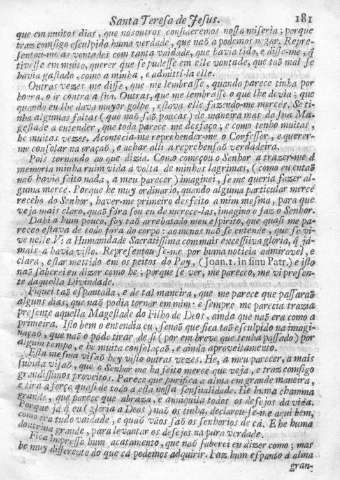 Santa Teresa de Jesus. 181
que em muitos dias, que nósoutros consideremos nossa miseria; porque
traz comsigo esculpido huma verdade, que naõ a podemos negar. Repre-
sentou-me as vontades com tanta vaidade, que havia tido, e disse-me,
tivesse em muito, querer que se pusesse em elle vontade, que taõ mal se
havia gastado, como a minha, e admitti-la elle.
Outras vezes me disse, que me lembrasse, quando parece tinha por
honra, o ir contra a sua. Outras, que me lembrasse o que lhe devia; que
quando eu lhe dava mayor golpe, estava elle fazendo-me mercés. Se ti-
nha algumas faltas (que naõ saõ poucas) de maneira mas dá sua Ma-
gestade a entender, que toda parece me desfaço, e como tenho muitas,
he muitas vezes. Acontecia-me reprehender-me o Confessor, e querer-
me consolar na oraçaõ, e achar alli a reprehensaõ verdadeira.
Pois tornando ao que dizia. Como começou o Senhor a trazer-me á
memoria minha ruim vida a volta de minhas lagrimas, (como eu entaõ
naõ havia feito nada, a meu parecer) imaginei, se me queria fazer al-
guma mercé. Porque he muy ordinario, quando alguma particular mercé
recebo do Senhor, haver-me primeiro desfeito a mim mesma, para que
veja mais claro, quaõ fóra sou eu de merece-las, imagino o faz o Senhor.
Dahi a hum pouco, foy taõ arrebatado meu espirito, que quasi me pa-
receo estava de todo fóra do corpo: ao menos naõ se entende, que se vi-
ve nelle. Vi a Humanade Sacratissima com mais excessiva gloria, que já-
mais a havia visto. Representou-se-me por huma noticia admiravel, e
clara, estar mettido em os peitos do Pay, (Joan. 1. in sinu Patr.) e isto
naõ saberei eu dizer como he; porque se ver, me pareceo, me vi presen-
te daquella Divindade.
Fiquei taõ espantada, e de tal maneira, que me parece que passaraõ
alguns dias, que naõ podia tornar em mim: e sempre me parecia trazia
presente aquella Magestade do Filho de Deos, ainda que naõ era como a
primeira. Isto bem o entendia eu, senaõ que fica taõ esculpido na imagi-
naçaõ, que naõ o póde tirar de si (por em breve que tenha passado) por
algum tempo, e he muita consolaçaõ, e ainda aproveitamento.
Esta mesma visaõ hey visto outras vezes. He, a meu parecer, a mais
subida visaõ, que o Senhor me ha feito mercé que veja, e traz comsigo
grandissimos proveitos. Parece que purifica a alma em grande maneira,
e tira a força quasi de todo a esta nossa sensualidade. He huma chamma
grande, que parece que abraza, e annquila todos os desejos da vida.
Porque já que eu (gloria a Deos) naõ os tinha, declarou-se-me aqui bem,
como era tudo vaidade, e quaõ vãos saõ os senhorios de cá. E he huma
doutrina grande, para levantar os desejos na pura verdade.
Fica impresso hum acatamento, que naõ saberei eu dizer como; mas
he muy differente do que cá podemos adquirir. Faz hum espanto á alma
gran-